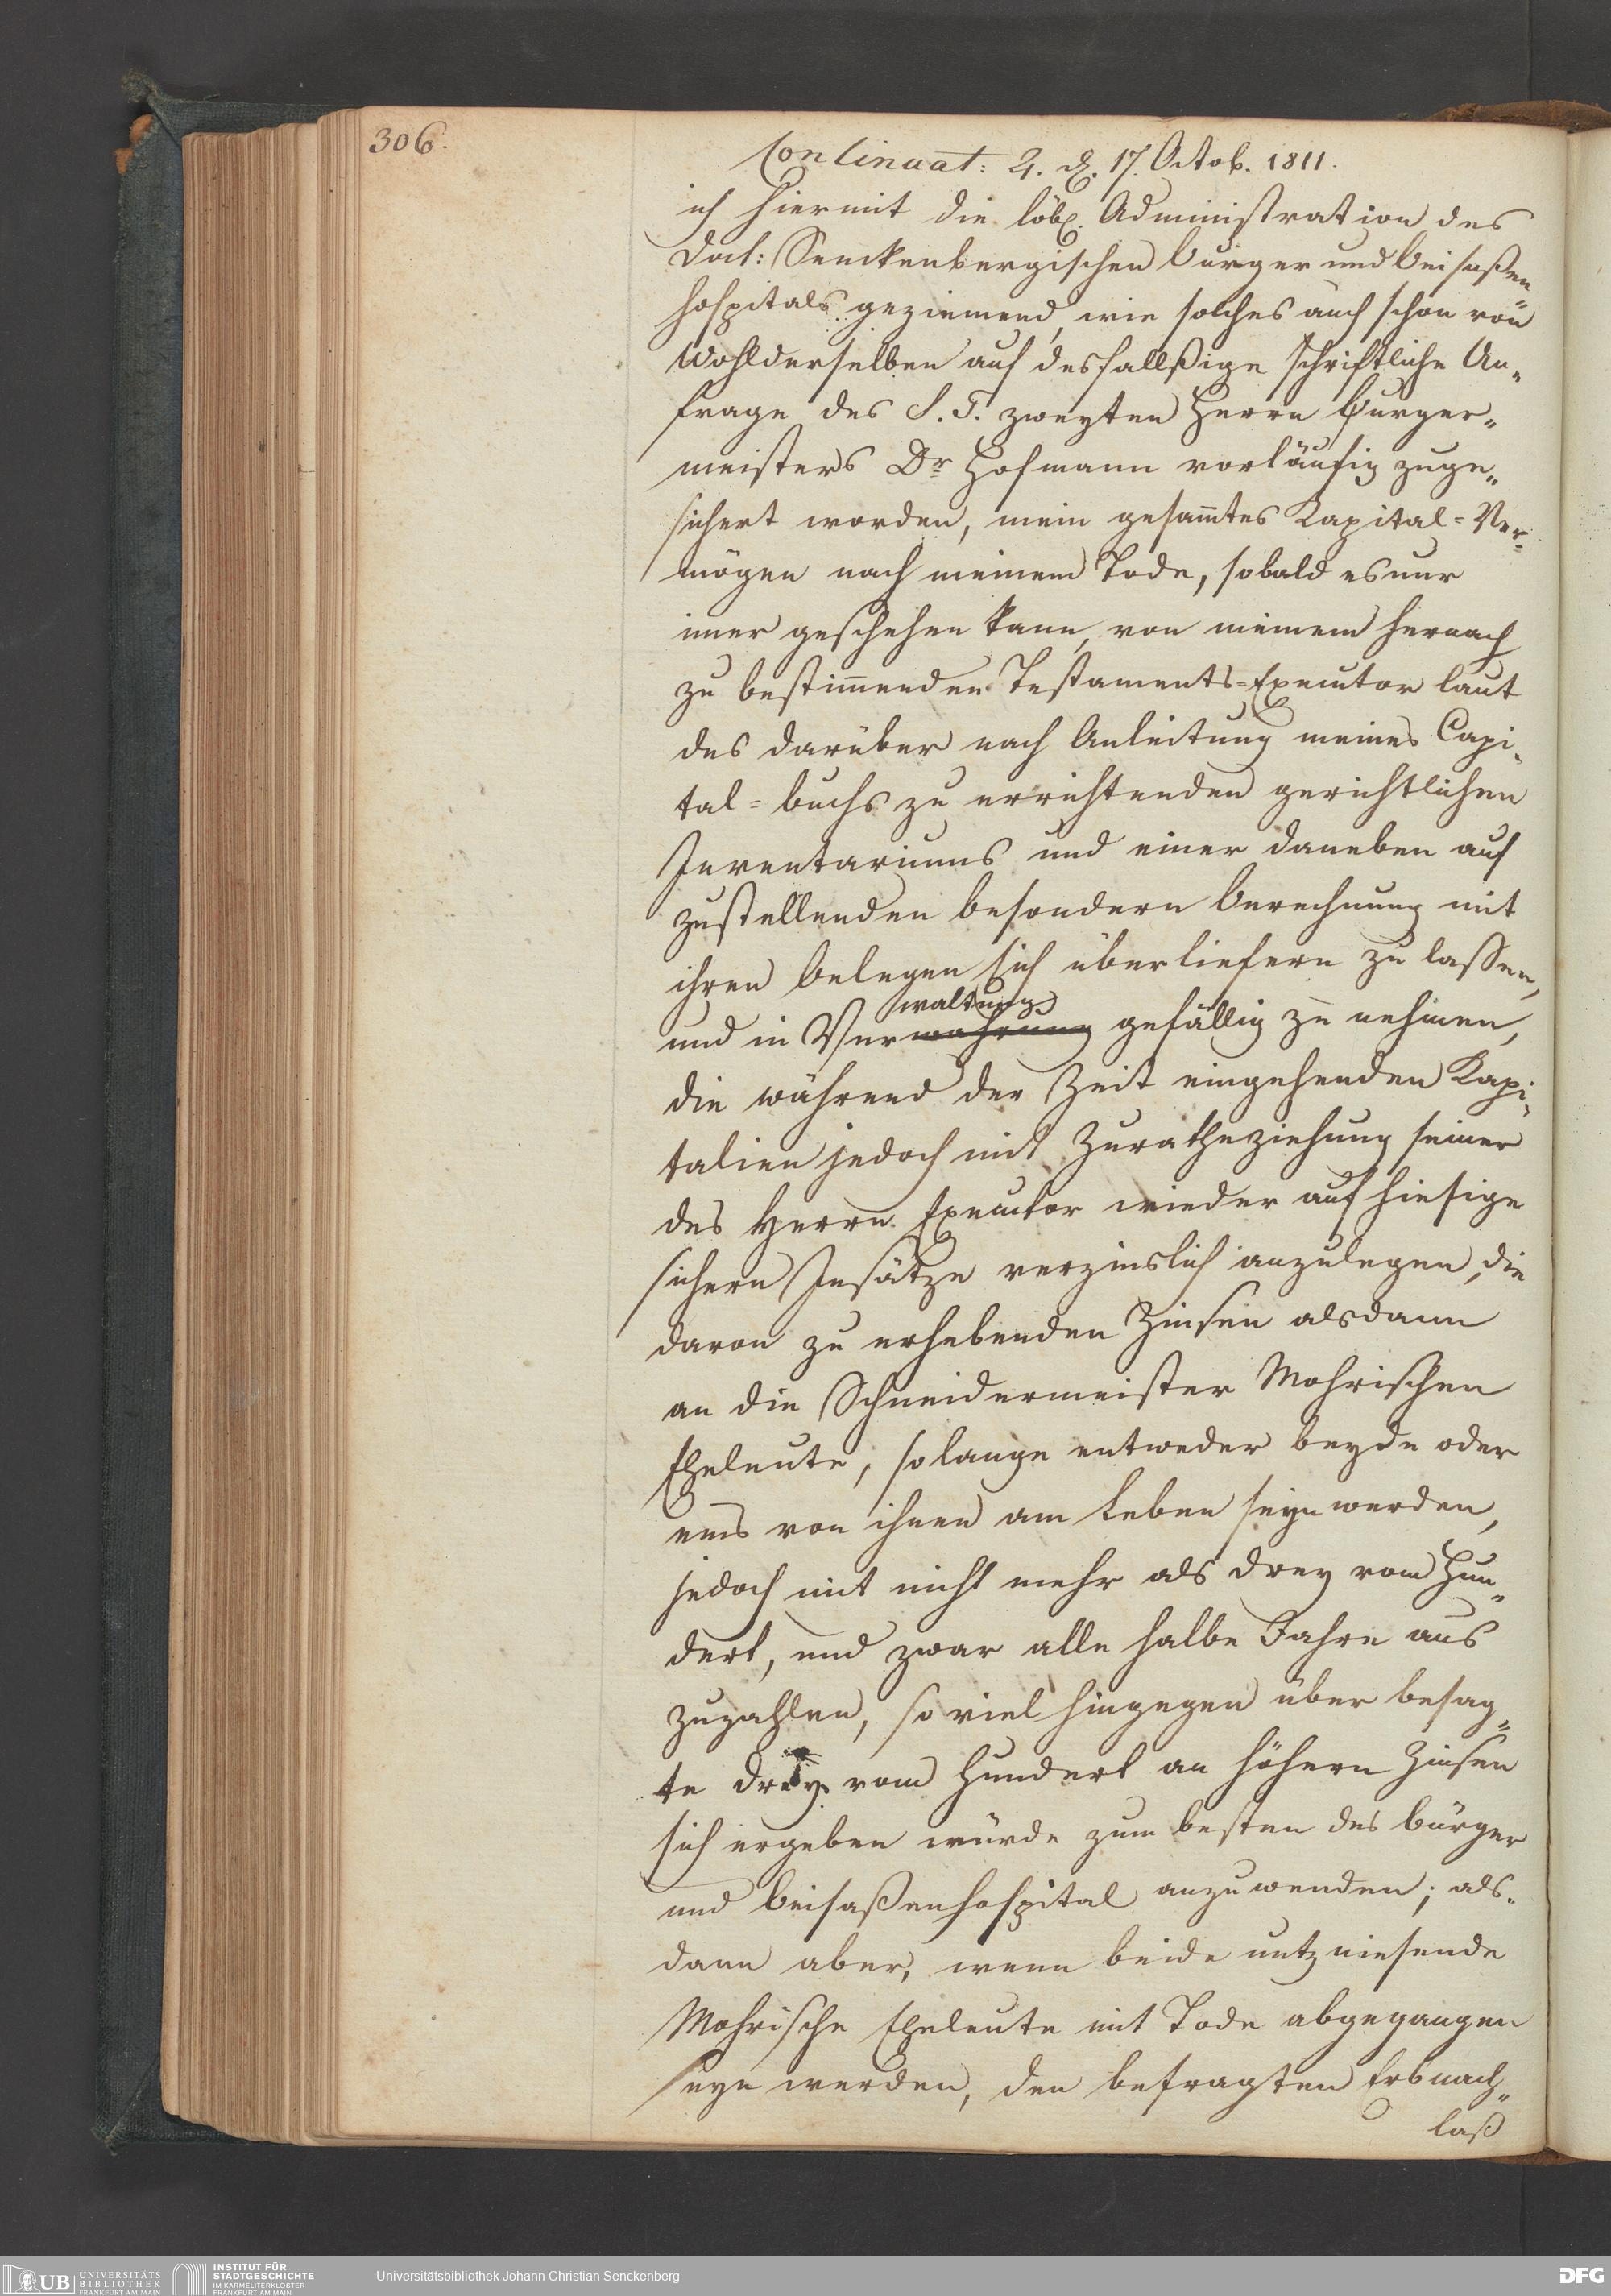 306.
Continuat: 2. d. 17. Octob. 1811.
ich hiermit die löbl. Administration des
Doct: Senckenbergischen Bürger und Beisaßen„
hospitals geziemend, wie solches auch schon von
Wohlderselben auf desfallßige schriftliche An„
frage des S. T. zweyten Herrn Burger„
meisters Dr Hofmann vorläufig zuge„
sichert worden, mein gesam̄tes Kapital=Ver„
mögen nach meinem Tode, sobald es nur
im̄er geschehen kann, von meinem hernach
zu bestim̄enden Testaments=Executor laut
des darüber nach Anleitung meines Capi„
tal=buchs zu errichtenden gerichtlichen
Inventariums und einer daneben auf
zustellenden besondern Berechnung mit
ihren Belegen sich überliefern zu lassen,
waltung
und in Verwahrung gefällig zu nehmen,
die während der Zeit eingehenden Kapi„
talien jedoch mit Zuratheziehung seiner
des Herrn Executor wieder auf hiesige
sichern Insätze verzinslich anzulegen, die
davon zu erhebenden Zinsen alsdann
an die Schneidermeister Mohrischen
Eheleute, so lange entweder beyde oder
eins von ihnen am Leben seyn werden,
jedoch mit nicht mehr als drey vom Hun„
dert, und zwar alle halbe Jahre aus
zuzahlen, so viel hingegen über besag„
te drey vom Hundert an höhern Zinsen
sich ergeben würde zum besten des bürger
und Beisaßenhospital anzuwenden; als„
dann aber, wenn beide nutzniesende
Mohrische Eheleute mit Tode abgegangen
seyn werden, den befragten Erbnach„
laß
UB UNIVERSITÄTS
BIBLIOTHEK
FRANKFURT AM MAIN
INSTITUT FÜR
STADTGESCHICHTE
IM KARMELITERKLOSTER
FRANKFURT AM MAIN
Universitätsbibliothek Johann Christian Senckenberg
DFG